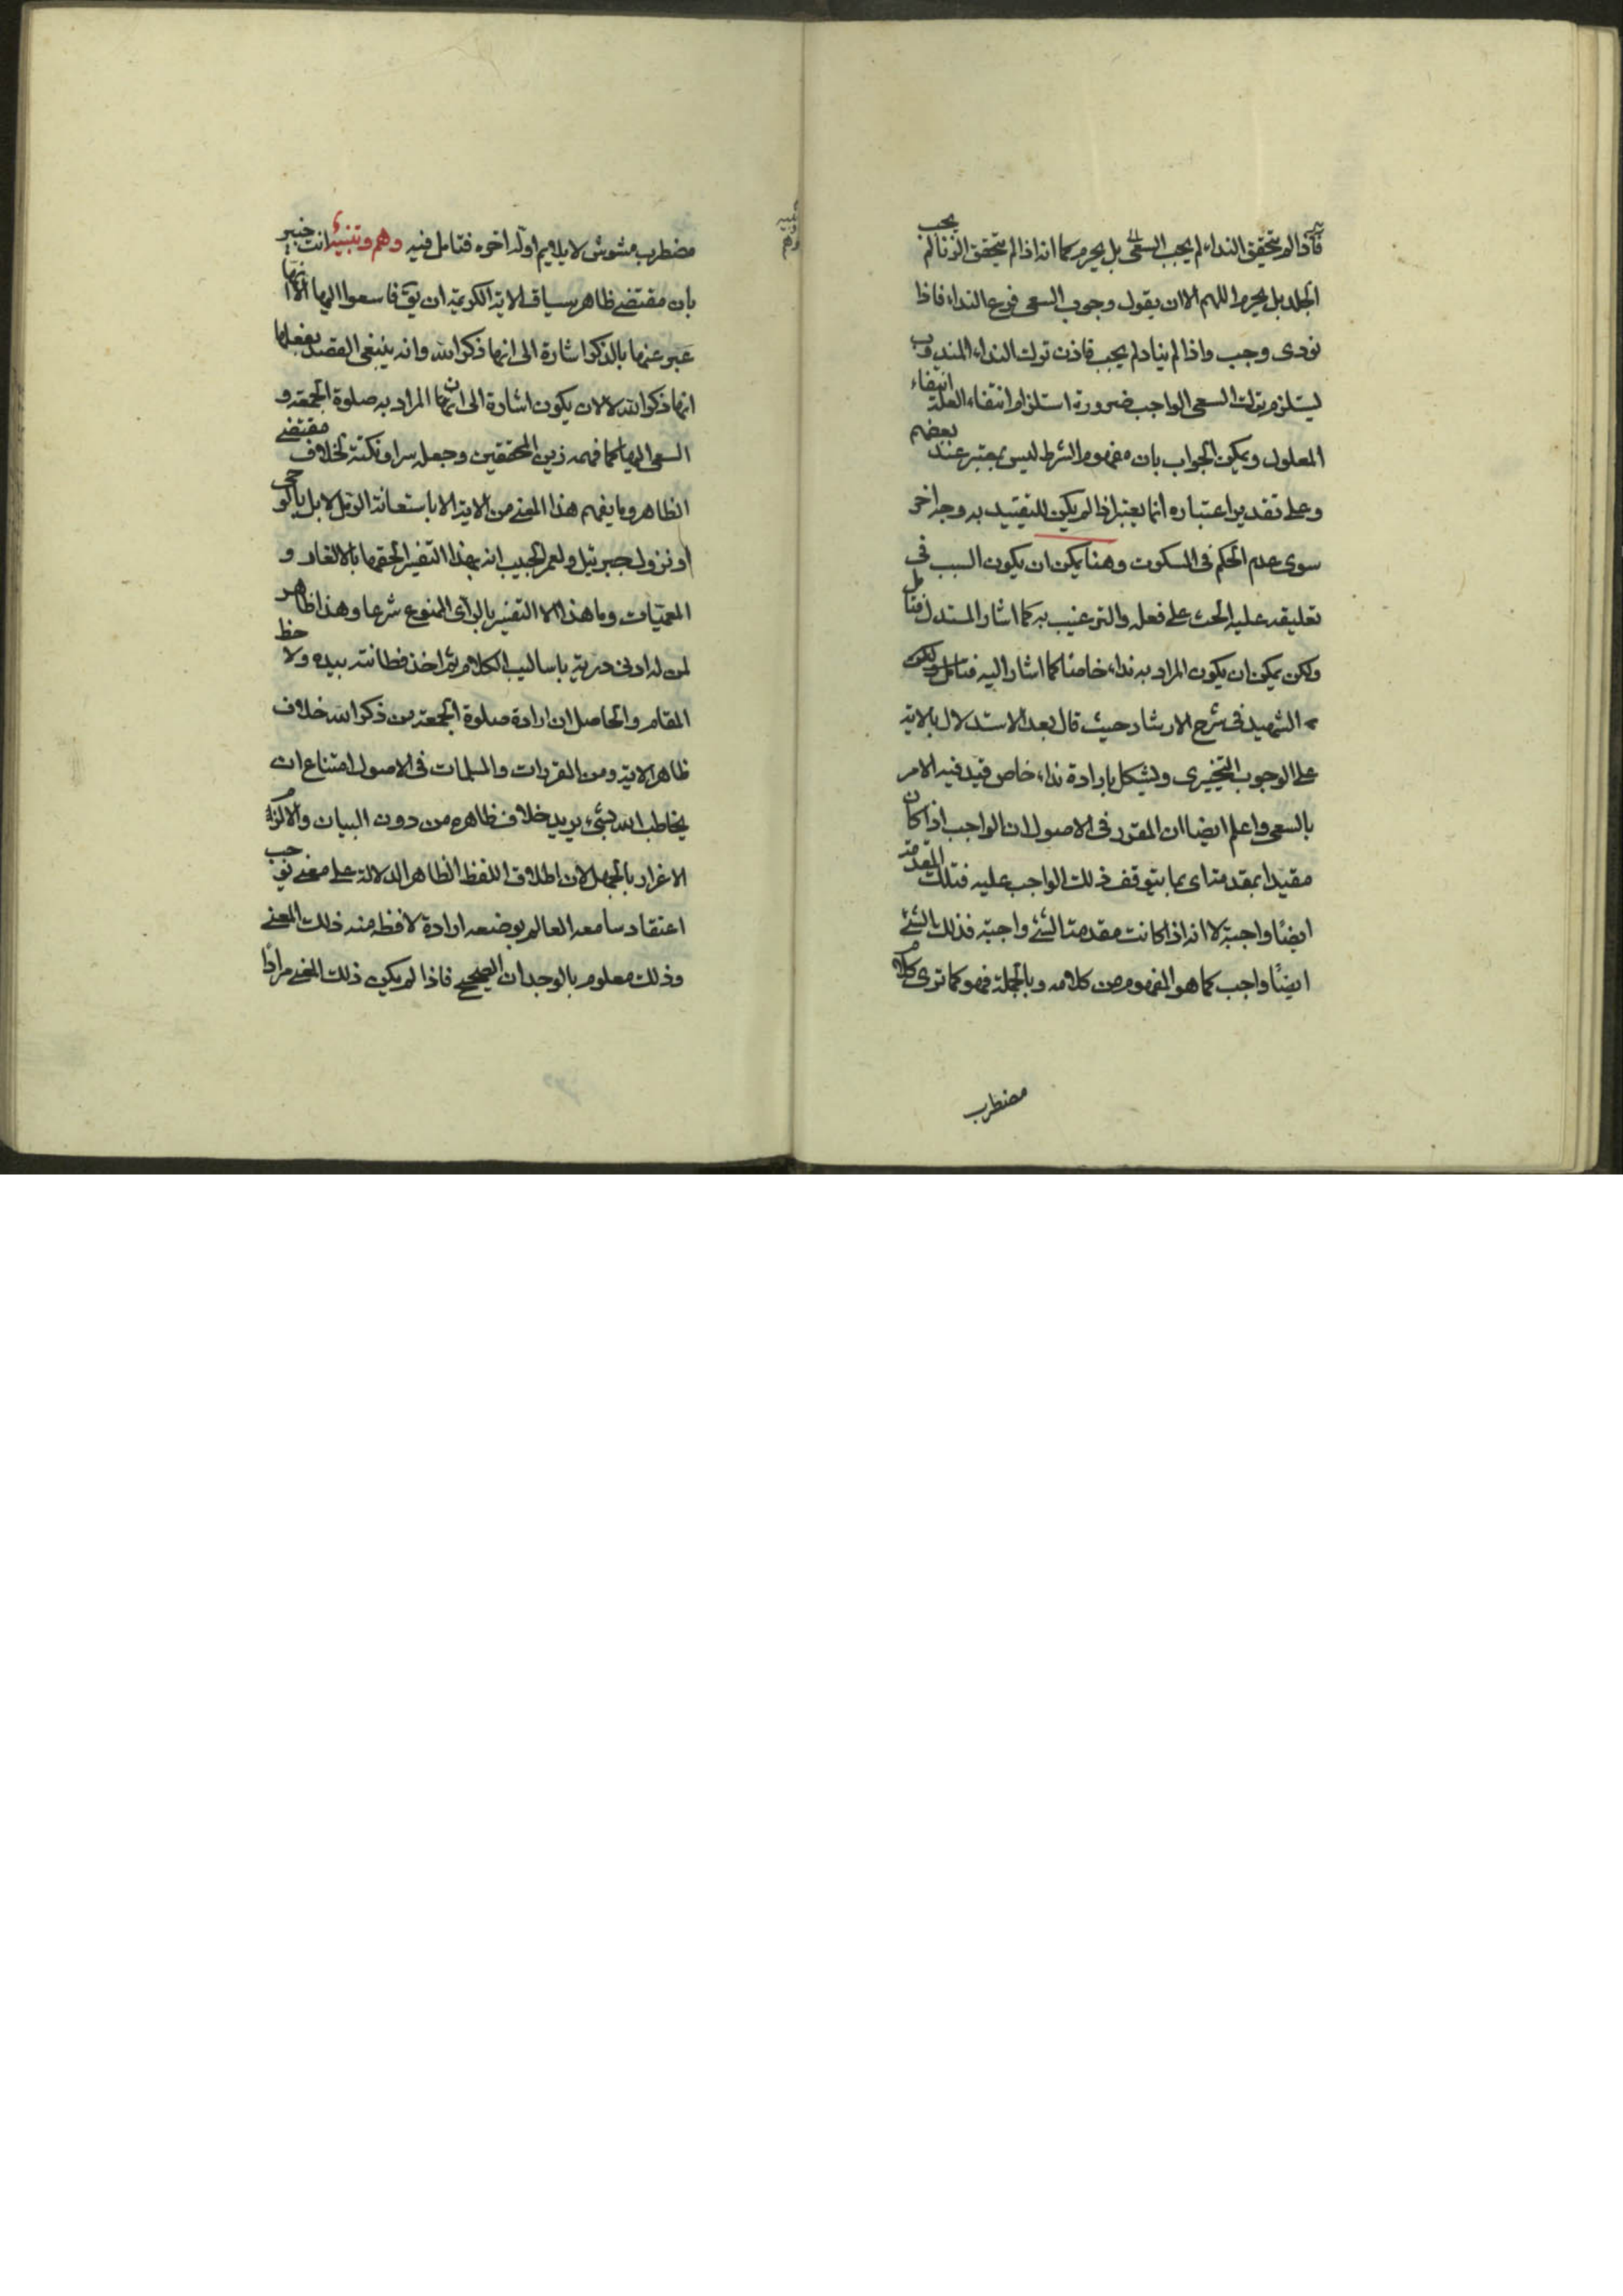 فاذا لم يتحقق النداء لم يجب السعى بل يحرم كما انه اذا لم يتحقق الزنا لم يجب
الجلد بل يحرم اللهم الا ان يقول وجوب السعى فرع النداء فاذا
نودى وجب واذا لم يناد لم يجب فاذن ترك النداء المندوب
يستلزم ترك السعى الواجب ضرورة استلزام انتفاء العلة انتفاء
المعلول ويمكن الجواب بان مفهوم الشرط ليس بمعتبر عند بعضهم
وعلى تقدير اعتباره انما يعتبر اذا لم يكن للتقييد به وجه اخر
سوى عدم الحكم فى المسكوت وهنا يمكن ان يكون السبب فى
تعليقه عليه الحث على فعله والترغيب به كما اشار المستدل فتامل
ولكن يمكن ان يكون المراد به نداء خاصا كما اشار اليه فتامل ولكن
الشهيد فى شرح الارشاد حيث قال بعد الاستدلال بالاية
على الوجوب التخييرى ويشكل بارادة نداء خاص قيد فيه الامر
بالسعى واعلم ايضا ان المقرر فى الاصول ان الواجب اذا كان
مقيدا بمقدمة اى بما يتوقف ذلك الواجب عليه فتلك المقدمة
ايضًا واجبة لا انه اذا كانت مقدمة الشئ واجبة فذلك الشئ
ايضًا واجب كما هو المفهوم من كلامه وبالجملة فهو كما ترى كلام
مضطرب
مضطرب مشوش لا يلايم اوله اخره فتامل فيه وهم وتنبيه انت خبير
بان مقتضى ظاهر سياق الاية الكريمة ان يق فاسعوا اليها الا انها
عبر عنها بالذكر اشارة الى انها ذكر الله وانه ينبغى القصد بفعلها
انها ذكر الله لا لان يكون اشارة الى ان المراد به صلوة الجمعة و
السعى اليها كما فهمه زين المحققين وجعله سرا ونكتة لخلاف مقتضى
الظاهر وما يفهم هذا المعنى من الاية الا باستعانة الرمل لا بل بالوحى
او نزول جبرئيل ولعمر الحبيب انه بهذا التفسير الحقها بالالغاز و
المعميات وما هذا الا التفسير بالراى الممنوع شرعا وهذا ظاهر
لمن له ادنى دربة باساليب الكلام ثم اخذ فطانته بيده ولاحظ
المقام والحاصل ان ارادة صلوة الجمعة من ذكر الله خلاف
ظاهر الاية ومن المقررات والمسلمات فى الاصول امتناع ان
يخاطب الله بشئ يريد خلاف ظاهره من دون البيان والا لزم
الاغراء بالجهل لان اطلاق اللفظ الظاهر الدلالة على معنى يوجب
اعتقاد سامعه العالم بوضعه ارادة لافظه منه ذلك المعنى
وذلك معلوم بالوجدان الصحيح فاذا لم يكن ذلك المعنى مرادًا